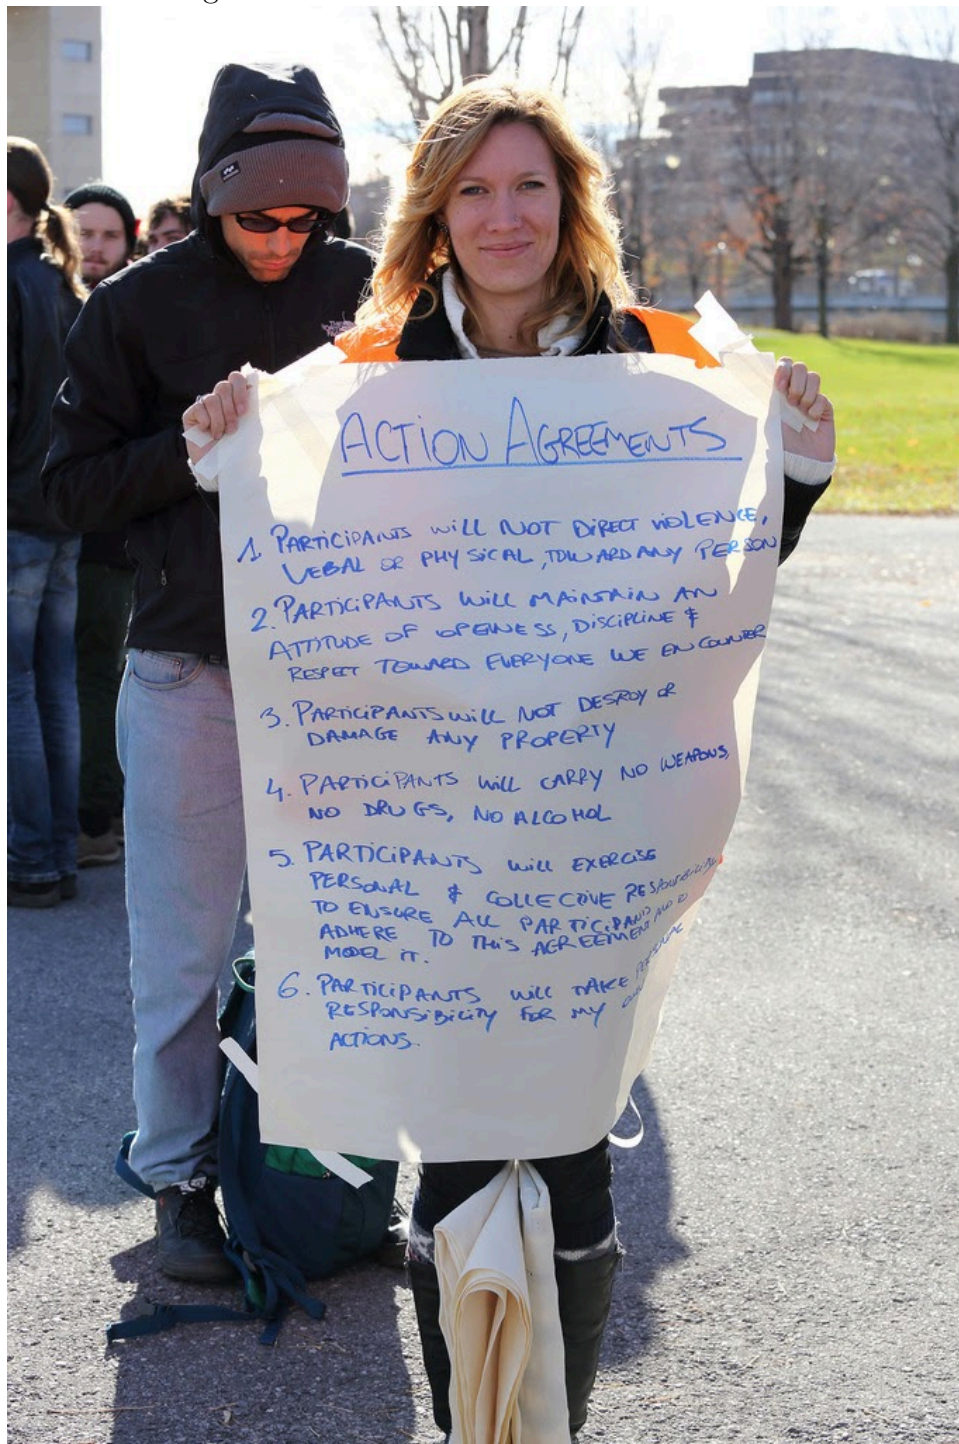 ACTION AGREEMENTS
1. PARTICIPANTS WILL NOT DIRECT VIOLENCE,
VEBAL OR PHYSICAL, TOWARD ANY PERSON
2. PARTICIPANTS WILL MAINTAIN AN
ATTITUDE OF OPENESS, DISCIPLINE &
RESPECT TOWARD EVERYONE WE ENCOUNTER
3. PARTICIPANTS WILL NOT DESROY OR
DAMAGE ANY PROPERTY
4. PARTICIPANTS WILL CARRY NO WEAPONS,
NO DRUGS, NO ALCOHOL
5. PARTICIPANTS WILL EXERCISE
PERSONAL & COLLECTIVE RESPONSIBILITY
TO ENSURE ALL PARTICIPANTS
ADHERE TO THIS AGREEMENT AND
MODEL IT.
6. PARTICIPANTS WILL TAKE PERSONAL
RESPONSIBILITY FOR MY
ACTIONS.